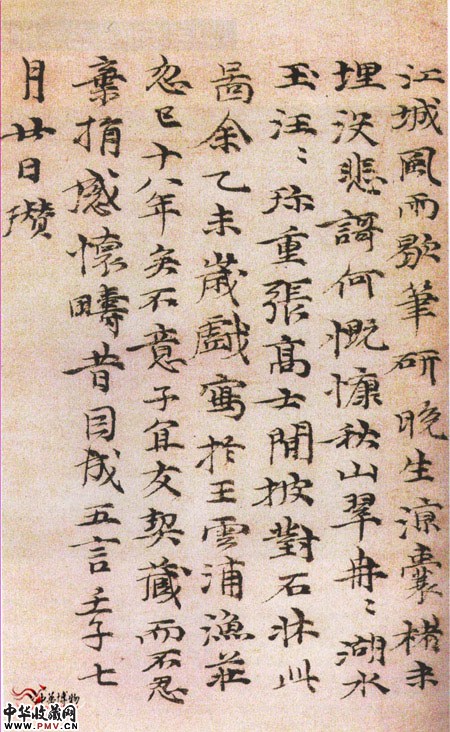 江城風雨歇筆研晚生涼囊楮未
埋沒悲謌何慨慷秋山翠冉〻湖水
玉汪〻珎重張高士閒披對石牀此
啚余乙未歲戲寫於王雲浦漁莊
忽已十八年矣不意子宜友契藏而不忍
棄捐感懷疇昔因成五言壬子七
月廿日瓚
中华收藏网
www.PMV.CN